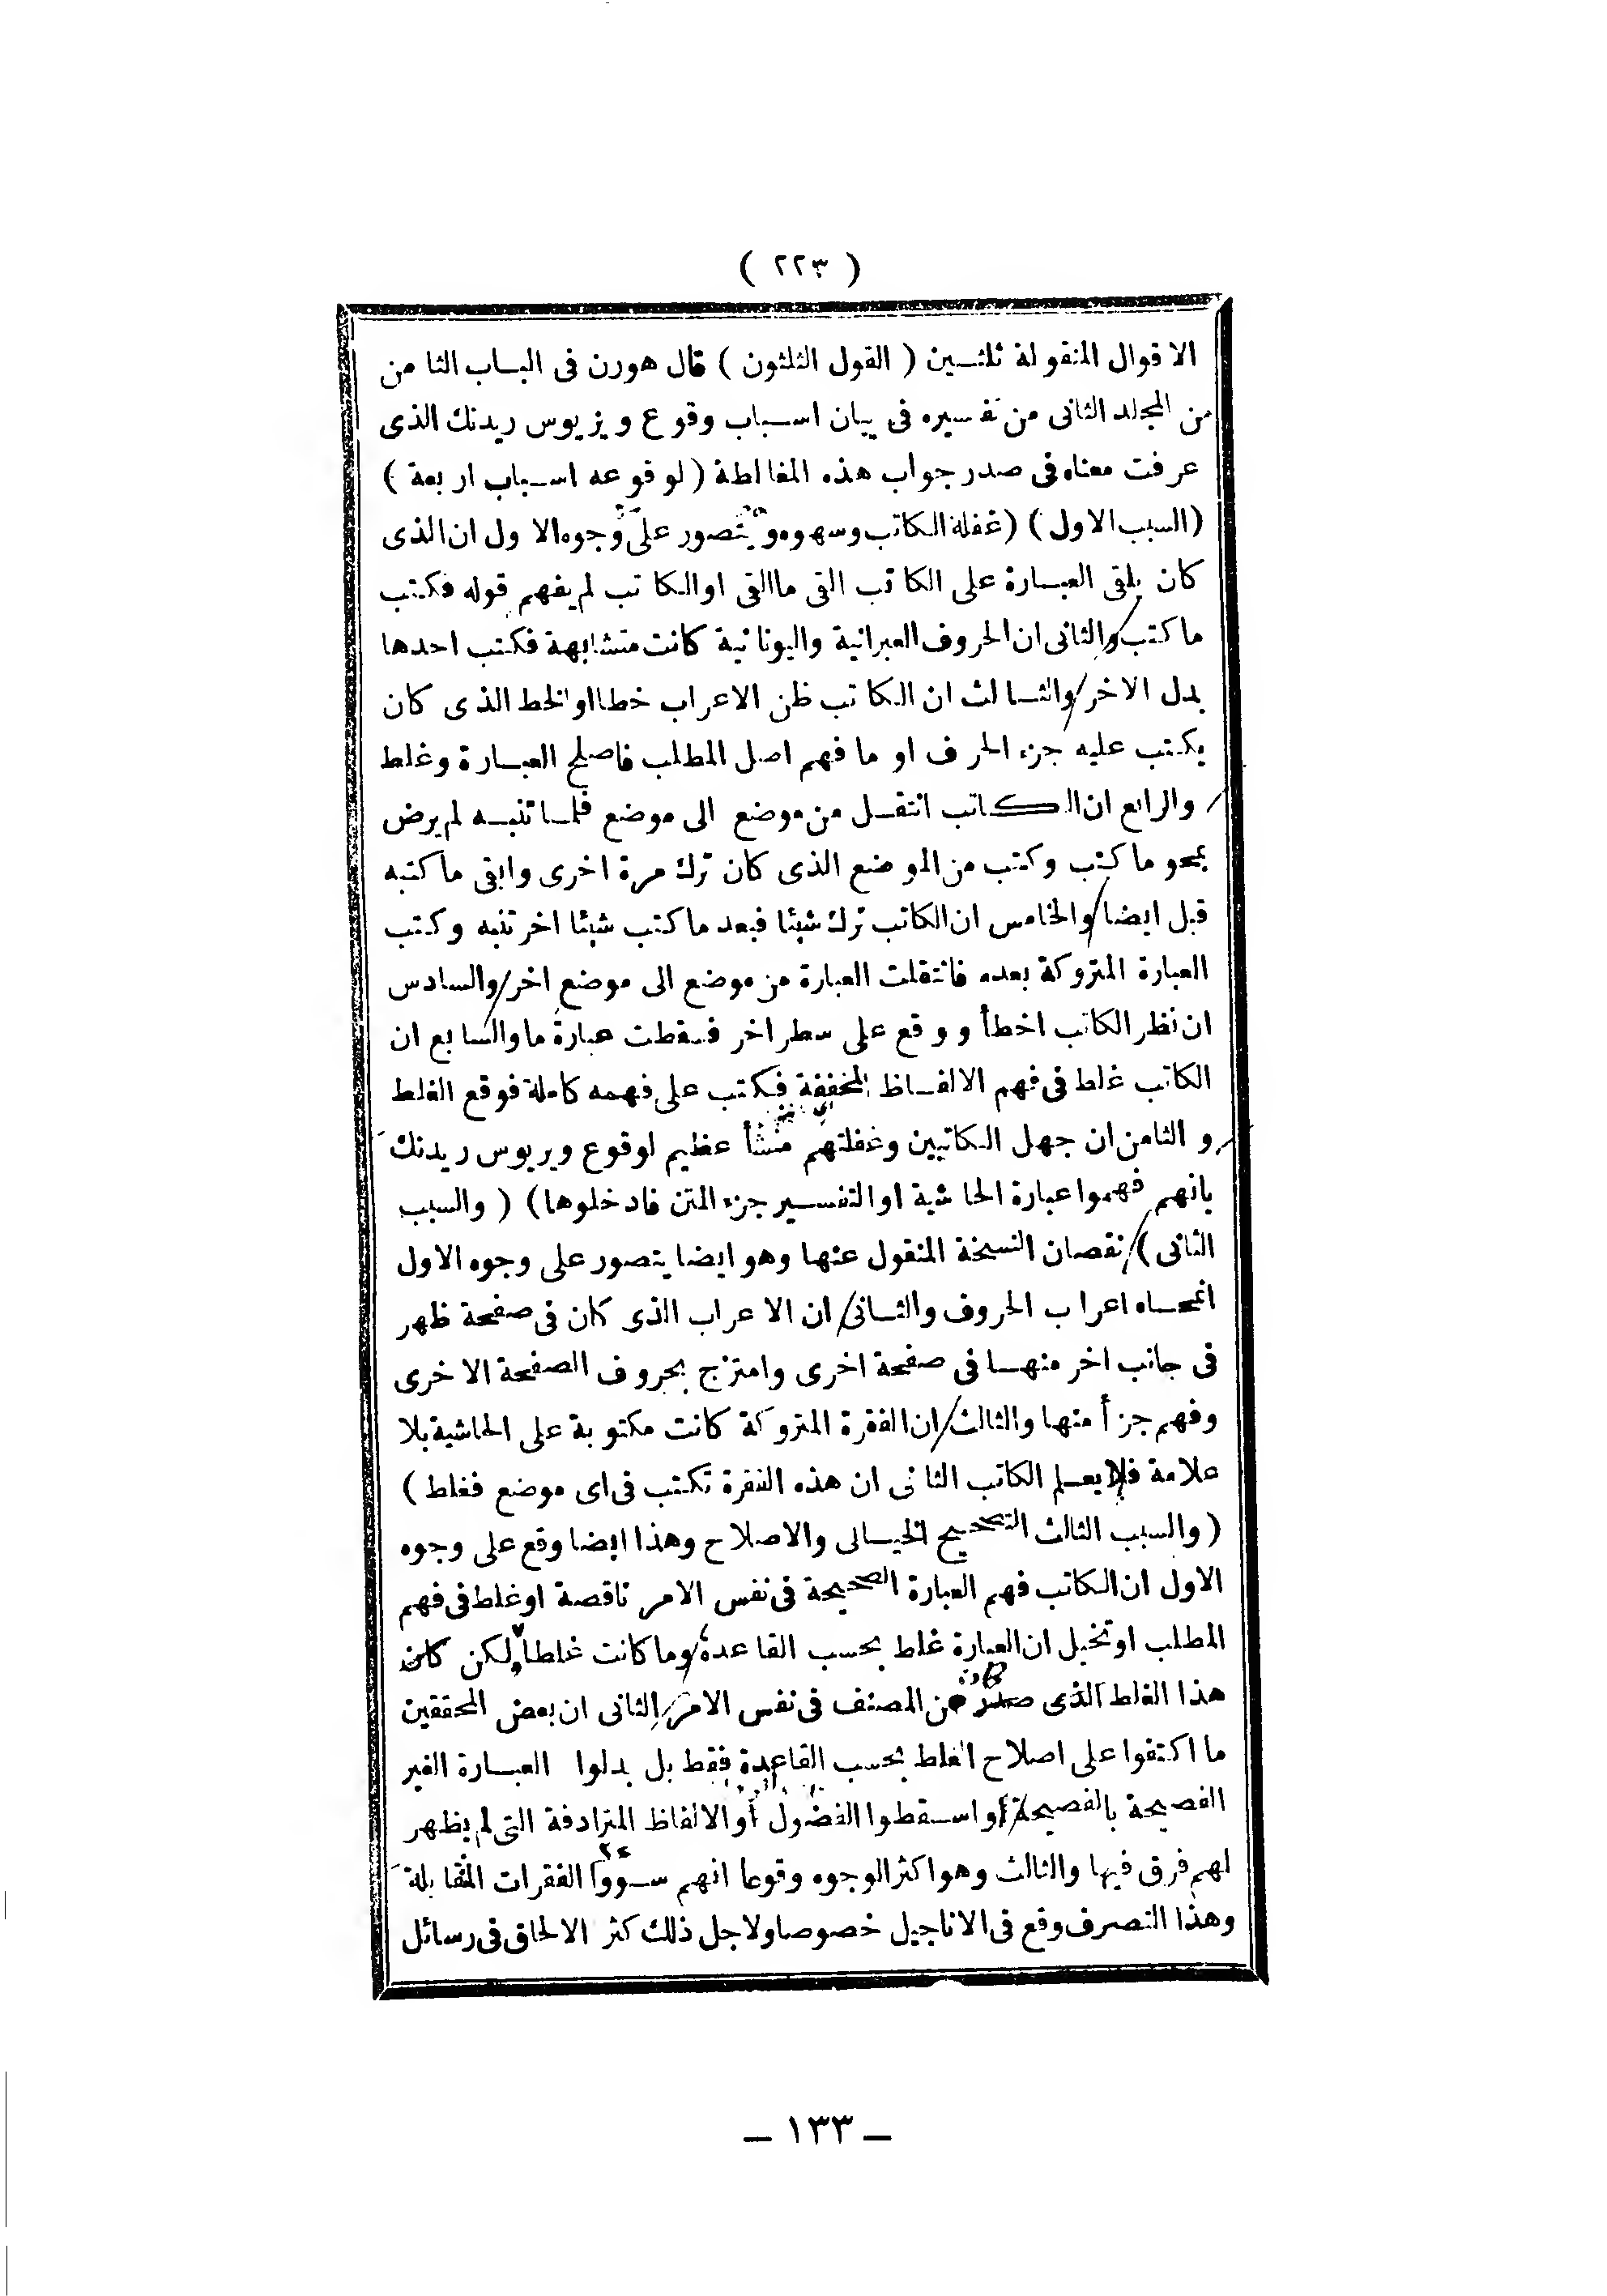 ( ٢٢٣ )
الاقوال المنقولة ثلثين ( القول الثلثون ) قال هورن فى الباب الثامن
من المجلد الثانى من تفسيره فى بيان اسباب وقوع ويزيوس ريدنك الذى
عرفت معناه فى صدر جواب هذه المغالطة ( لوقوعه اسباب اربعة )
(السبب الاول ) (غفلة الكاتب وسهوه ويتصور على وجوه الاول ان الذى
كان يلقى العبارة على الكاتب القى ما القى او الكاتب لم يفهم قوله فكتب
ما كتب والثانى ان الحروف العبرانية واليونانية كانت متشابهة فكتب احدها
بدل الاخر والثالث ان الكاتب ظن الاعراب خطا او الخط الذى كان
يكتب عليه جزء الحرف او ما فهم اصل المطلب فاصلح العبارة وغلط
والرابع ان الكاتب انتقل من موضع الى موضع فلما تنبه لم يرض
بمحو ما كتب وكتب من الموضع الذى كان ترك مرة اخرى وابقى ما كتبه
قبل ايضا والخامس ان الكاتب ترك شيئا فبعد ما كتب شيئا اخر تنبه وكتب
العبارة المتروكة بعده فانتقلت العبارة من موضع الى موضع اخر والسادس
ان نظر الكاتب اخطأ ووقع على سطر اخر فسقطت عبارة ما والسابع ان
الكاتب غلط فى فهم الالفاظ المخففة فكتب على فهمه كاملة فوقع الغلط
و الثامن ان جهل الكاتبين وغفلتهم منشأ عظيم لوقوع ويريوس ريدنك
بانهم فهموا عبارة الحاشية او التفسير جزء المتن فادخلوها ) ( والسبب
الثانى ) نقصان النسخة المنقول عنها وهو ايضا يتصور على وجوه الاول
انمحاه اعراب الحروف والثانى ان الاعراب الذى كان فى صفحة ظهر
فى جانب اخر منها فى صفحة اخرى وامتزج بحروف الصفحة الاخرى
وفهم جزأ منها والثالث ان الفقرة المتروكة كانت مكتوبة على الحاشية بلا
علامة فلا يعلم الكاتب الثانى ان هذه الفقرة تكتب فى اى موضع فغلط )
( والسبب الثالث التصحيح الخيالى والاصلاح وهذا ايضا وقع على وجوه
الاول ان الكاتب فهم العبارة الصحيحة فى نفس الامر ناقصة او غلط فى فهم
المطلب او تخيل ان العبارة غلط بحسب القاعدة وما كانت غلطا ولكن كان
هذا الغلط الذى صدر من المصنف فى نفس الامر والثانى ان بعض المحققين
ما اكتفوا على اصلاح الغلط بحسب القاعدة فقط بل بدلوا العبارة الغير
الفصيحة بالفصيحة أو اسقطوا الفضول أو الالفاظ المترادفة التى لم يظهر
لهم فرق فيها والثالث وهو اكثر الوجوه وقوعا انهم سووا الفقرات المقابلة
وهذا التصرف وقع فى الاناجيل خصوصا ولاجل ذلك كثر الالحاق فى رسائل
– ١٣٣ –